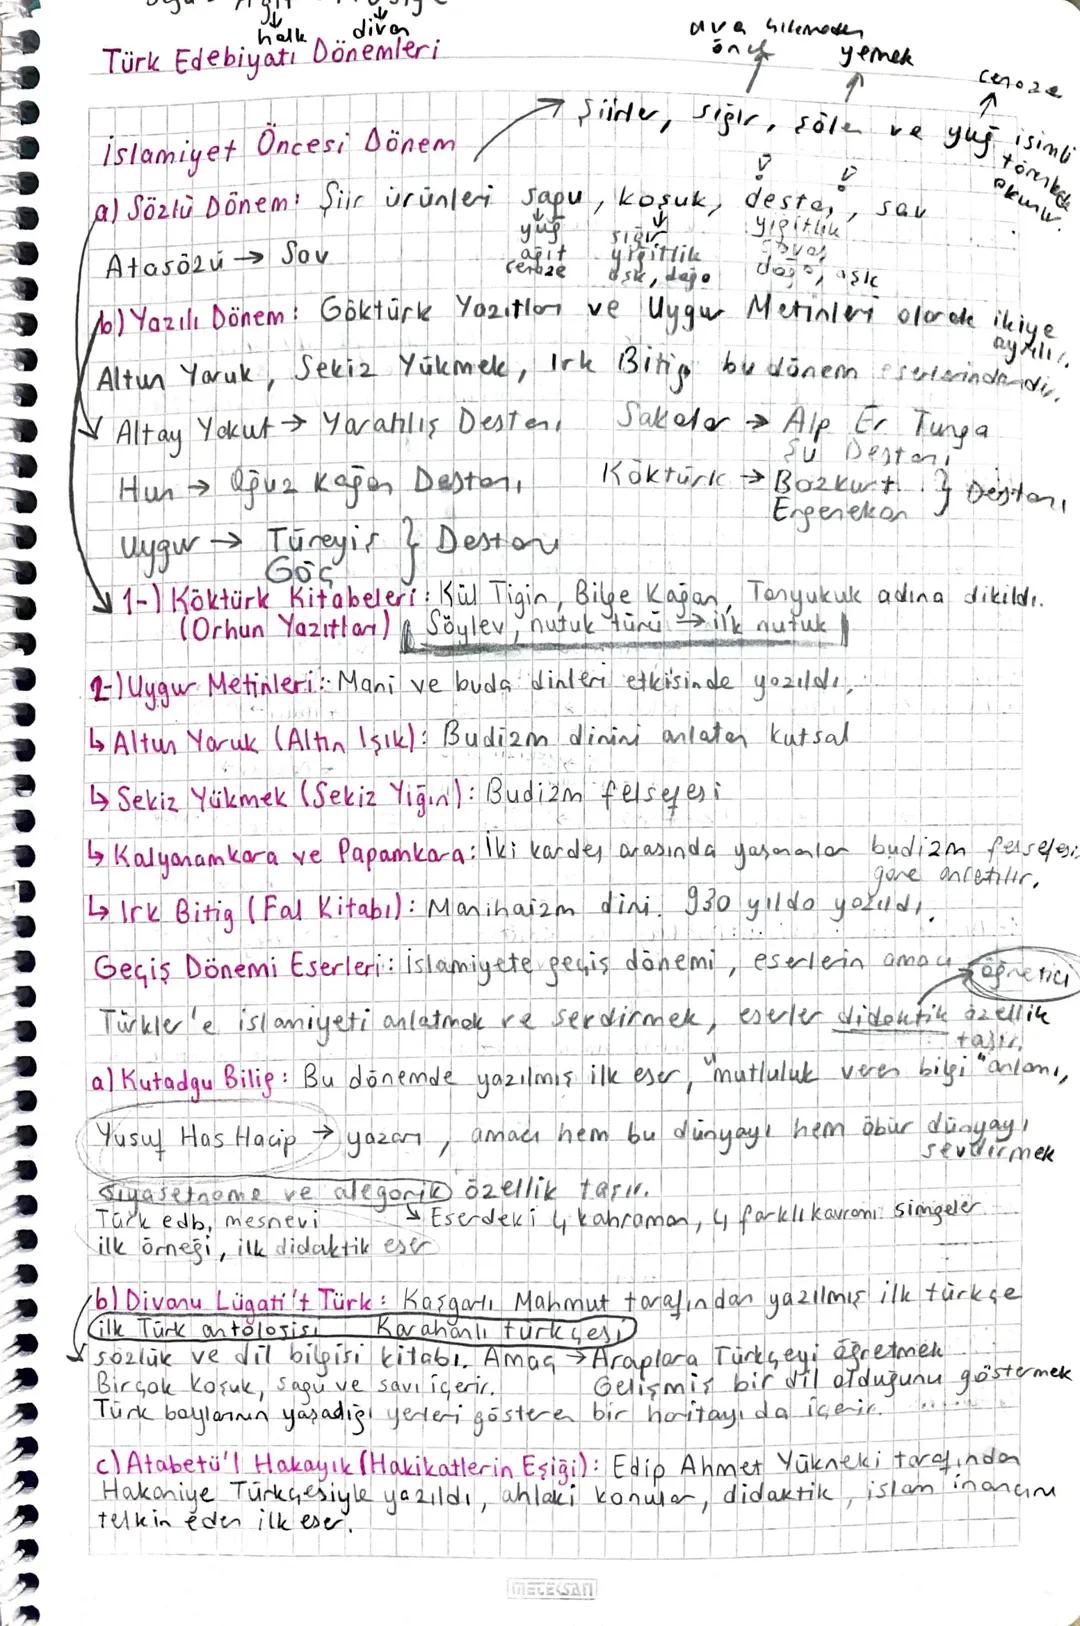 halk divan
Türk Edebiyatı Dönemleri
ava çıkmadan
önce yemek
cenaze
İslamiyet Öncesi Dönem
Şiirler, sığır, şölen ve yuğ isimli
törenlerde
okunur.
a) Sözlü Dönem: Şiir ürünleri sagu, koşuk, destan, sav
yuğ sığır yiğitlik
ağıt yiğitlik savaş
cenaze aşk, doğa doğa, aşk
Atasözü → Sav
b) Yazılı Dönem: Göktürk Yazıtları ve Uygur Metinleri olarak ikiye
ayrılır.
Altun Yaruk, Sekiz Yükmek, Irk Bitig bu dönem eserlerindendir.
Altay Yakut → Yaratılış Destanı Sakalar → Alp Er Tunga
Şu Destanı
Hun → Oğuz Kağan Destanı Köktürk → Bozkurt } Destanı
Ergenekon
Uygur → Türeyiş } Destanı
Göç
1-) Köktürk Kitabeleri: Kül Tigin, Bilge Kağan, Tonyukuk adına dikildi.
(Orhun Yazıtları) Söylev, nutuk türü → ilk nutuk
2-) Uygur Metinleri: Mani ve buda dinleri etkisinde yazıldı.
↳ Altun Yaruk (Altın Işık): Budizm dinini anlatan kutsal
↳ Sekiz Yükmek (Sekiz Yığın): Budizm felsefesi
↳ Kalyanamkara ve Papamkara: İki kardeş arasında yaşananlar budizm felsefesi
göre anlatılır.
↳ Irk Bitig (Fal Kitabı): Manihaizm dini. 930 yılda yazıldı.
Geçiş Dönemi Eserleri: İslamiyete geçiş dönemi, eserlerin amacı öğretici
Türkler'e islamiyeti anlatmak ve serdirmek, eserler didaktik özellik
taşır.
a) Kutadgu Bilig: Bu dönemde yazılmış ilk eser, "mutluluk veren bilgi" anlamı,
Yusuf Has Hacip → yazarı, amacı hem bu dünyayı hem öbür dünyayı
sevdirmek
Siyasetname ve alegorik özellik taşır.
Türk edb, mesnevi ↳ Eserdeki 4 kahraman, 4 farklı kavramı simgeler
ilk örneği, ilk didaktik eser
b) Divanu Lügati't Türk: Kaşgarlı Mahmut tarafından yazılmış ilk türkçe
ilk Türk antolojisi Karahanlı türkçesi
sözlük ve dil bilgisi kitabı. Amaç → Araplara Türkçeyi öğretmek
Birçok koşuk, sagu ve savı içerir. Gelişmiş bir dil olduğunu göstermek
Türk boylarının yaşadığı yerleri gösteren bir haritayı da içerir.
c) Atabetü'l Hakayık (Hakikatlerin Eşiği): Edip Ahmet Yükneki tarafından
Hakaniye Türkçesiyle yazıldı, ahlaki konular, didaktik, islam inancını
telkin eden ilk eser.
METEKSAN